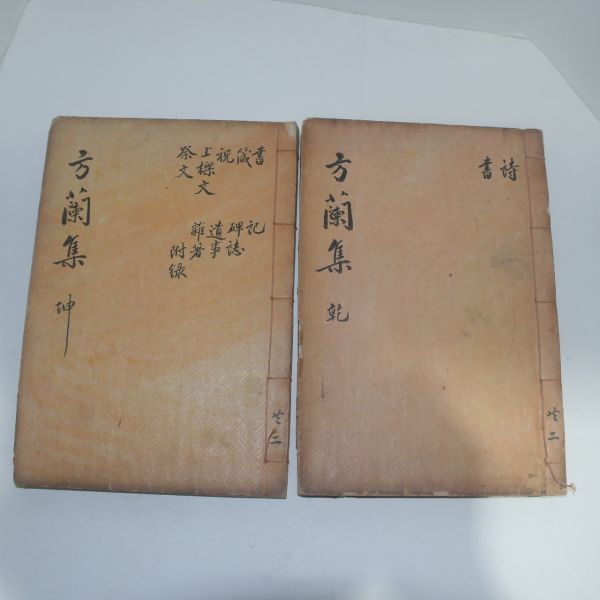 方蘭集
坤
書
箴
祝
上樑文
祭文
記
碑誌
遺事
雜著
附録
共二
方蘭集
乾
詩
書
共二